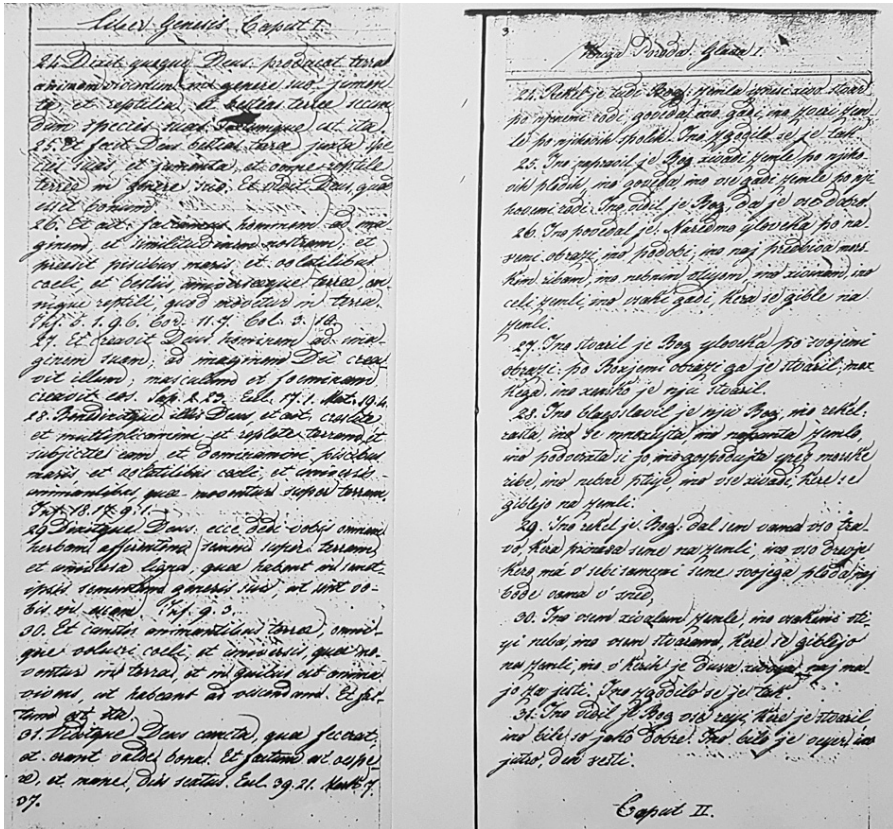 Liber Genesis. Caput I.
24. Dixit quoque Deus: producat terra
animam viventem in genere suo, jumen-
ta, et reptilia, et bestias terræ secun-
dum species suas. Factumque est ita
25. Et fecit Deus bestias terræ juxta spe-
cies suas et jumenta, et omne reptile
terræ in genere suo. Et vidit Deus, quod
esset bonum
26. Et ait: faciamus hominem ad ima
ginem, et similitudinem nostram; et
præsit piscibus maris et volatilibus
coeli, et bestiis, universæque terræ, om-
nique reptili, quod movetur in terra.
Inf. 5. 1. 9. 6. Cor. 11. 7. Col. 3. 10.
27. Et creavit Deus hominem ad ima-
ginem suam; ad imaginem Dei crea-
vit illum; masculum et foeminam
creavit eos. Sap. 2. 23. Eccl. 17. 1. Mat. 19. 4.
28. Benedixitque illis Deus, et ait: crescite
et multiplicamini et replete terram, et
subjicite eam, et dominamini piscibus
maris, et volatilibus coeli, et universis
animantibus, quæ moventur super terram.
Inf. 8. 17. 9. 1.
29. Dixitque Deus: ecce dedi vobis omnem
herbam afferentem semen super terram,
et universa ligna, quæ habent in semet-
ipsis sementem generis sui, ut sint vo-
bis in escam Inf. 9. 3.
30. Et cunctis animantibus terræ, omni-
que volucri coeli, et universis, quæ mo-
ventur in terra, et in quibus est anima
vivens, ut habeant ad vescendum. Et fac-
tum est ita.
31. Viditque Deus cuncta, quæ fecerat,
et erant valde bona. Et factum est vespe-
re, et mane, dies sextus. Eccl. 39. 21. Mark 7.
37.
3
Kniga Poroda. Glava 1.
24. Rekel je tudi Bog: zemla vonesi xivo stvar
po njenimi rodi, goveda, ino gadi, ino zveri zem
le po njihovih spolih. Ino zgodilo se je tak
25. Ino napravil je Bog zviradi zemle po njiho
vih plodih, ino goveda, ino vse gadi zemle po nji
hovemi rodi. Ino vidil je Bog, da je vse dobro.
26. Ino povedal je: Naredmo zloveka po na
semi obrazi, ino podobi, ino naj predobiva mors
kim ribam, ino nebnim ptizam, ino zivinam, ino
celi zemli, ino vsaki gadi, kera se gible na
zemli.
27. Ino stvaril je Bog zloveka po svojemi
obrazi: po Boxjemi obrazi ga je stvaril; mox
kega, ino xensko je nju stvaril
28. Ino blagoslavil je nju Bog, ino rekel:
rasta, ino se mnoxujta ino napunta zemlo,
ino podvrzta si jo ino gospodujta zrez morske
ribe, ino nebne ptize, ino vse zviradi, kere se
giblejo na zemli.
29. Ino rekel je Bog: dal sem vama vso tra
vo, kera prinasa seme na zemli, ino vso drevje
kero má v' sebi samemi seme svojega ploda, naj
bode vama v' xired,
30. Ino vsem xivalam zemle, ino vsakemi sti-
zi neba, ino vsem stvaram, kere se giblejo
na zemli, ino v' kerih je duxa xivoza, naj ma-
jo za jesti. Ino zgodilo se je tak
31. Ino vidil je Bog vse rezi, kere je stvaril
ino bile so jako dobre. Ino bilo je vezer, ino
jutro, den xesti.
Caput II.